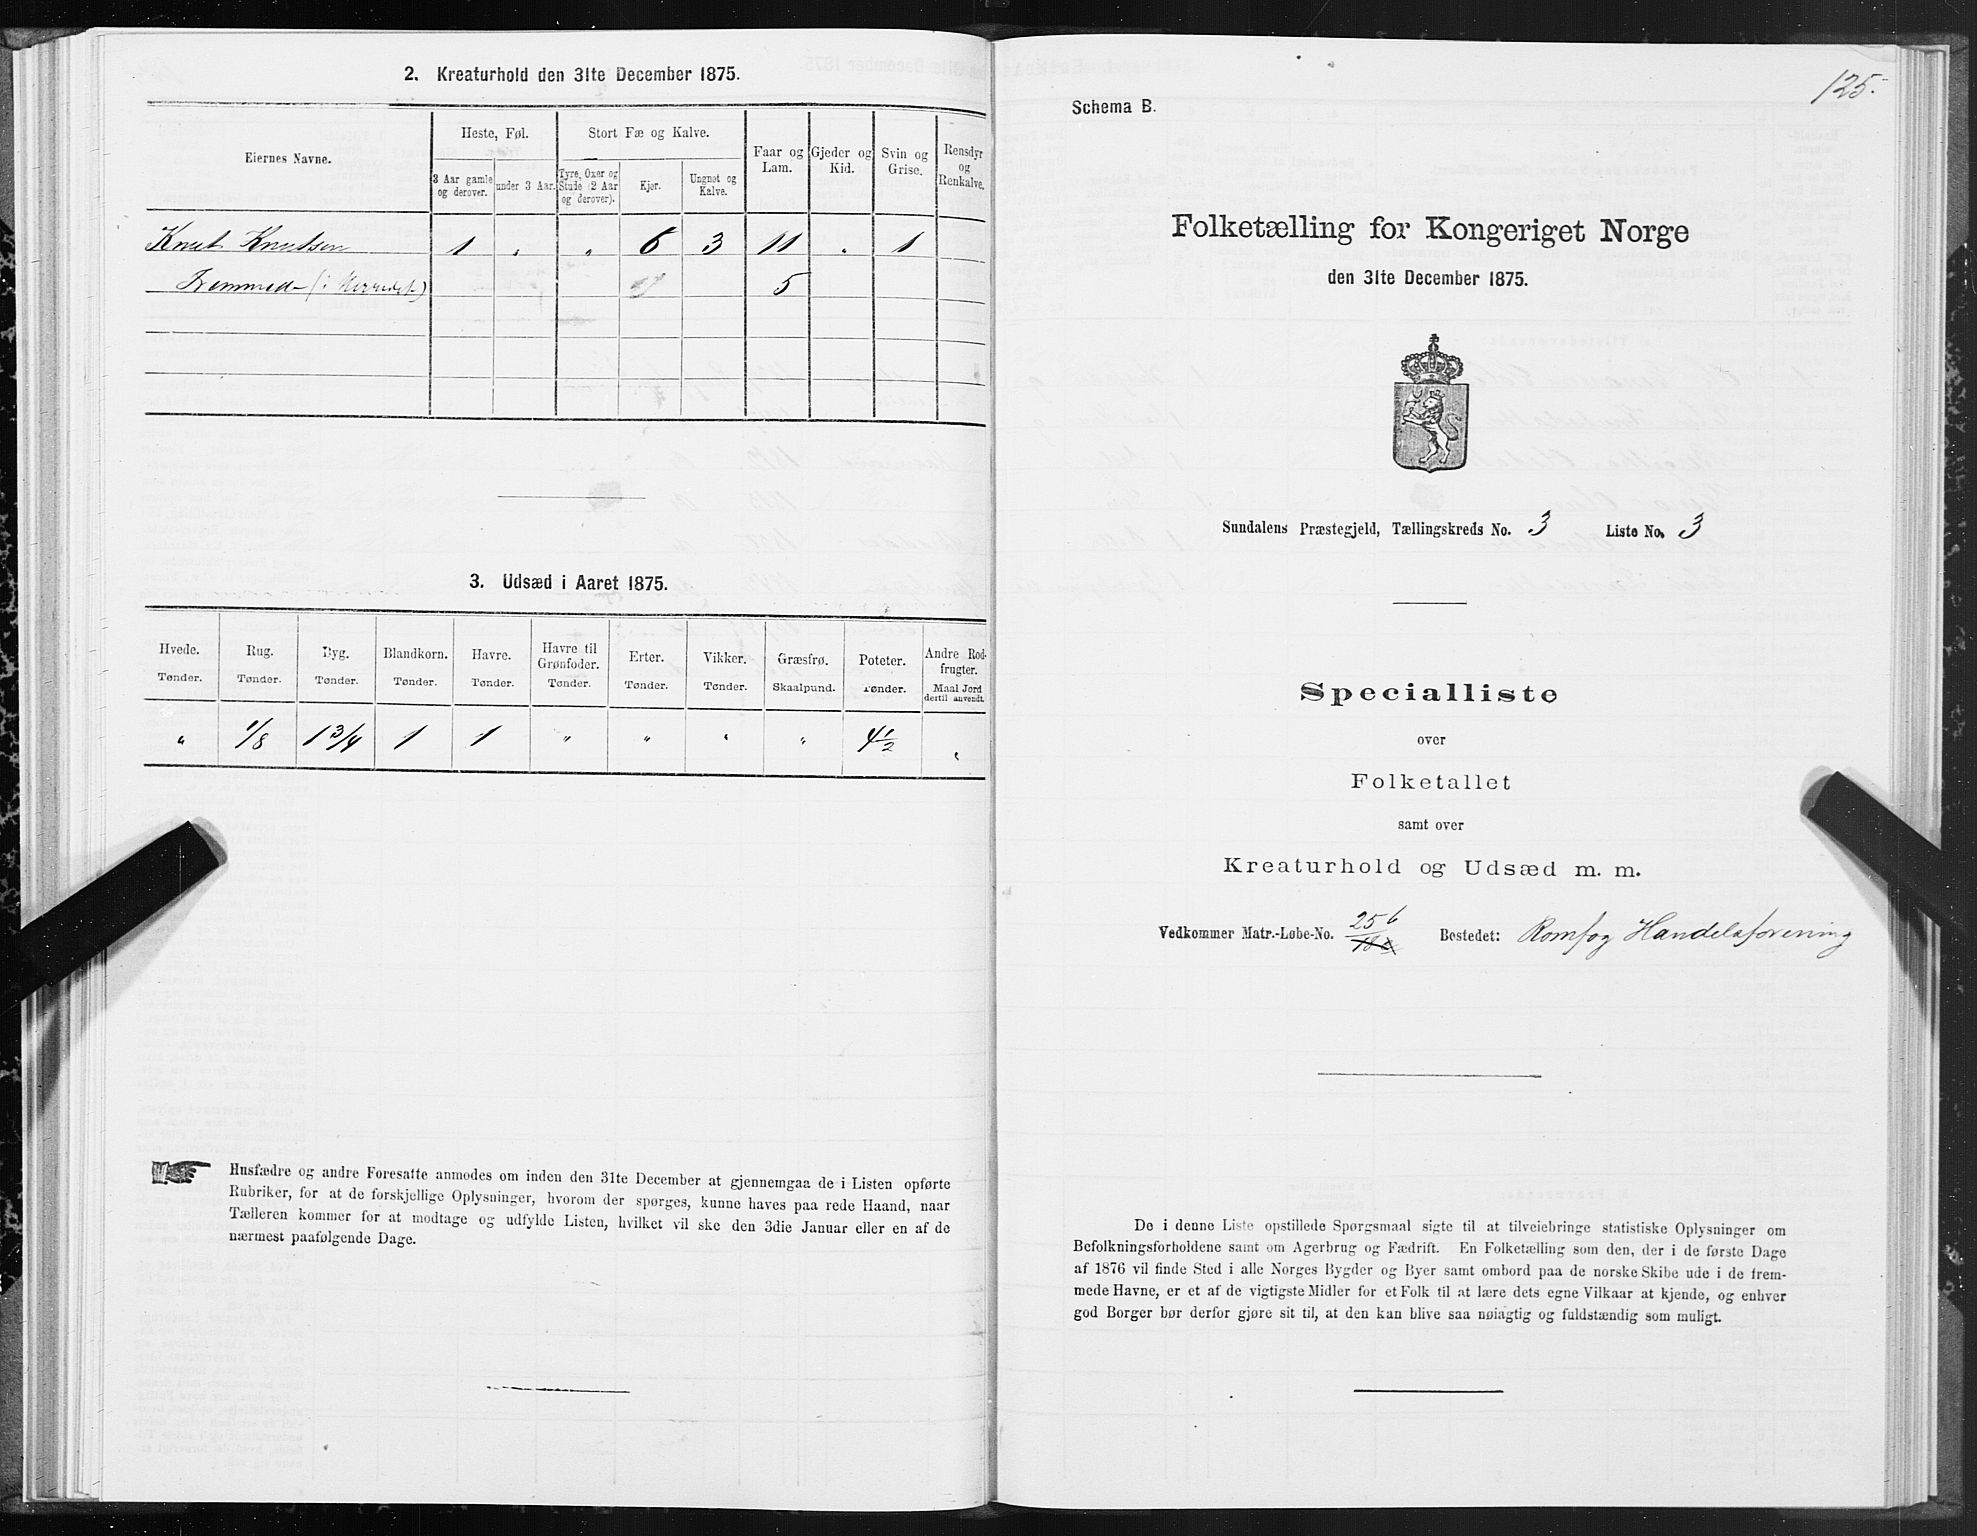 2. Kreaturhold den 31te December 1875.
Eiernes Navne.
Heste, Føl.
Stort Fæ og Kalve.
Faar og Lam.
Gjeder og Kid.
Svin og Grise.
Rensdyr og Renkalve.
3 Aar gamle og derover.
under 3 Aar.
Tyre, Oxer og Stude (2 Aar og derover).
Kjør.
Ungnøt og Kalve.
Knut Knutsen 1 " " 6 3 11 " 1
Fremmed (i Herredet) 5
3. Udsæd i Aaret 1875.
Hvede. Rug. Byg. Blandkorn. Havre. Havre til Grønfoder. Erter. Vikker. Græsfrø. Poteter. Andre Rodfrugter.
Tønder. Tønder. Tønder. Tønder. Tønder. Tønder. Tønder. Tønder. Skaalpund. Tønder. Maal Jord dertil anvendt.
" 1/8 1 3/4 1 1 " " " " 4 1/2 "
Husfædre og andre Foresatte anmodes om inden den 31te December at gjennemgaa de i Listen opførte
Rubriker, for at de forskjellige Oplysninger, hvorom der spørges, kunne haves paa rede Haand, naar
Tælleren kommer for at modtage og udfylde Listen, hvilket vil ske den 3die Januar eller en af de
nærmest paafølgende Dage.
125.
Schema B.
Folketælling for Kongeriget Norge
den 31te December 1875.
Sundalens Præstegjeld, Tællingskreds No. 3 Liste No. 3
Specialliste
over
Folketallet
samt over
Kreaturhold og Udsæd m. m.
Vedkommer Matr.-Løbe-No. 25 b Bostedet: Romfog Handelsforening
De i denne Liste opstillede Spørgsmaal sigte til at tilveiebringe statistiske Oplysninger om
Befolkningsforholdene samt om Agerbrug og Fædrift. En Folketælling som den, der i de første Dage
af 1876 vil finde Sted i alle Norges Bygder og Byer samt ombord paa de norske Skibe ude i de frem-
mede Havne, er et af de vigtigste Midler for et Folk til at lære dets egne Vilkaar at kjende, og enhver
god Borger bør derfor gjøre sit til, at den kan blive saa nøiagtig og fuldstændig som muligt.